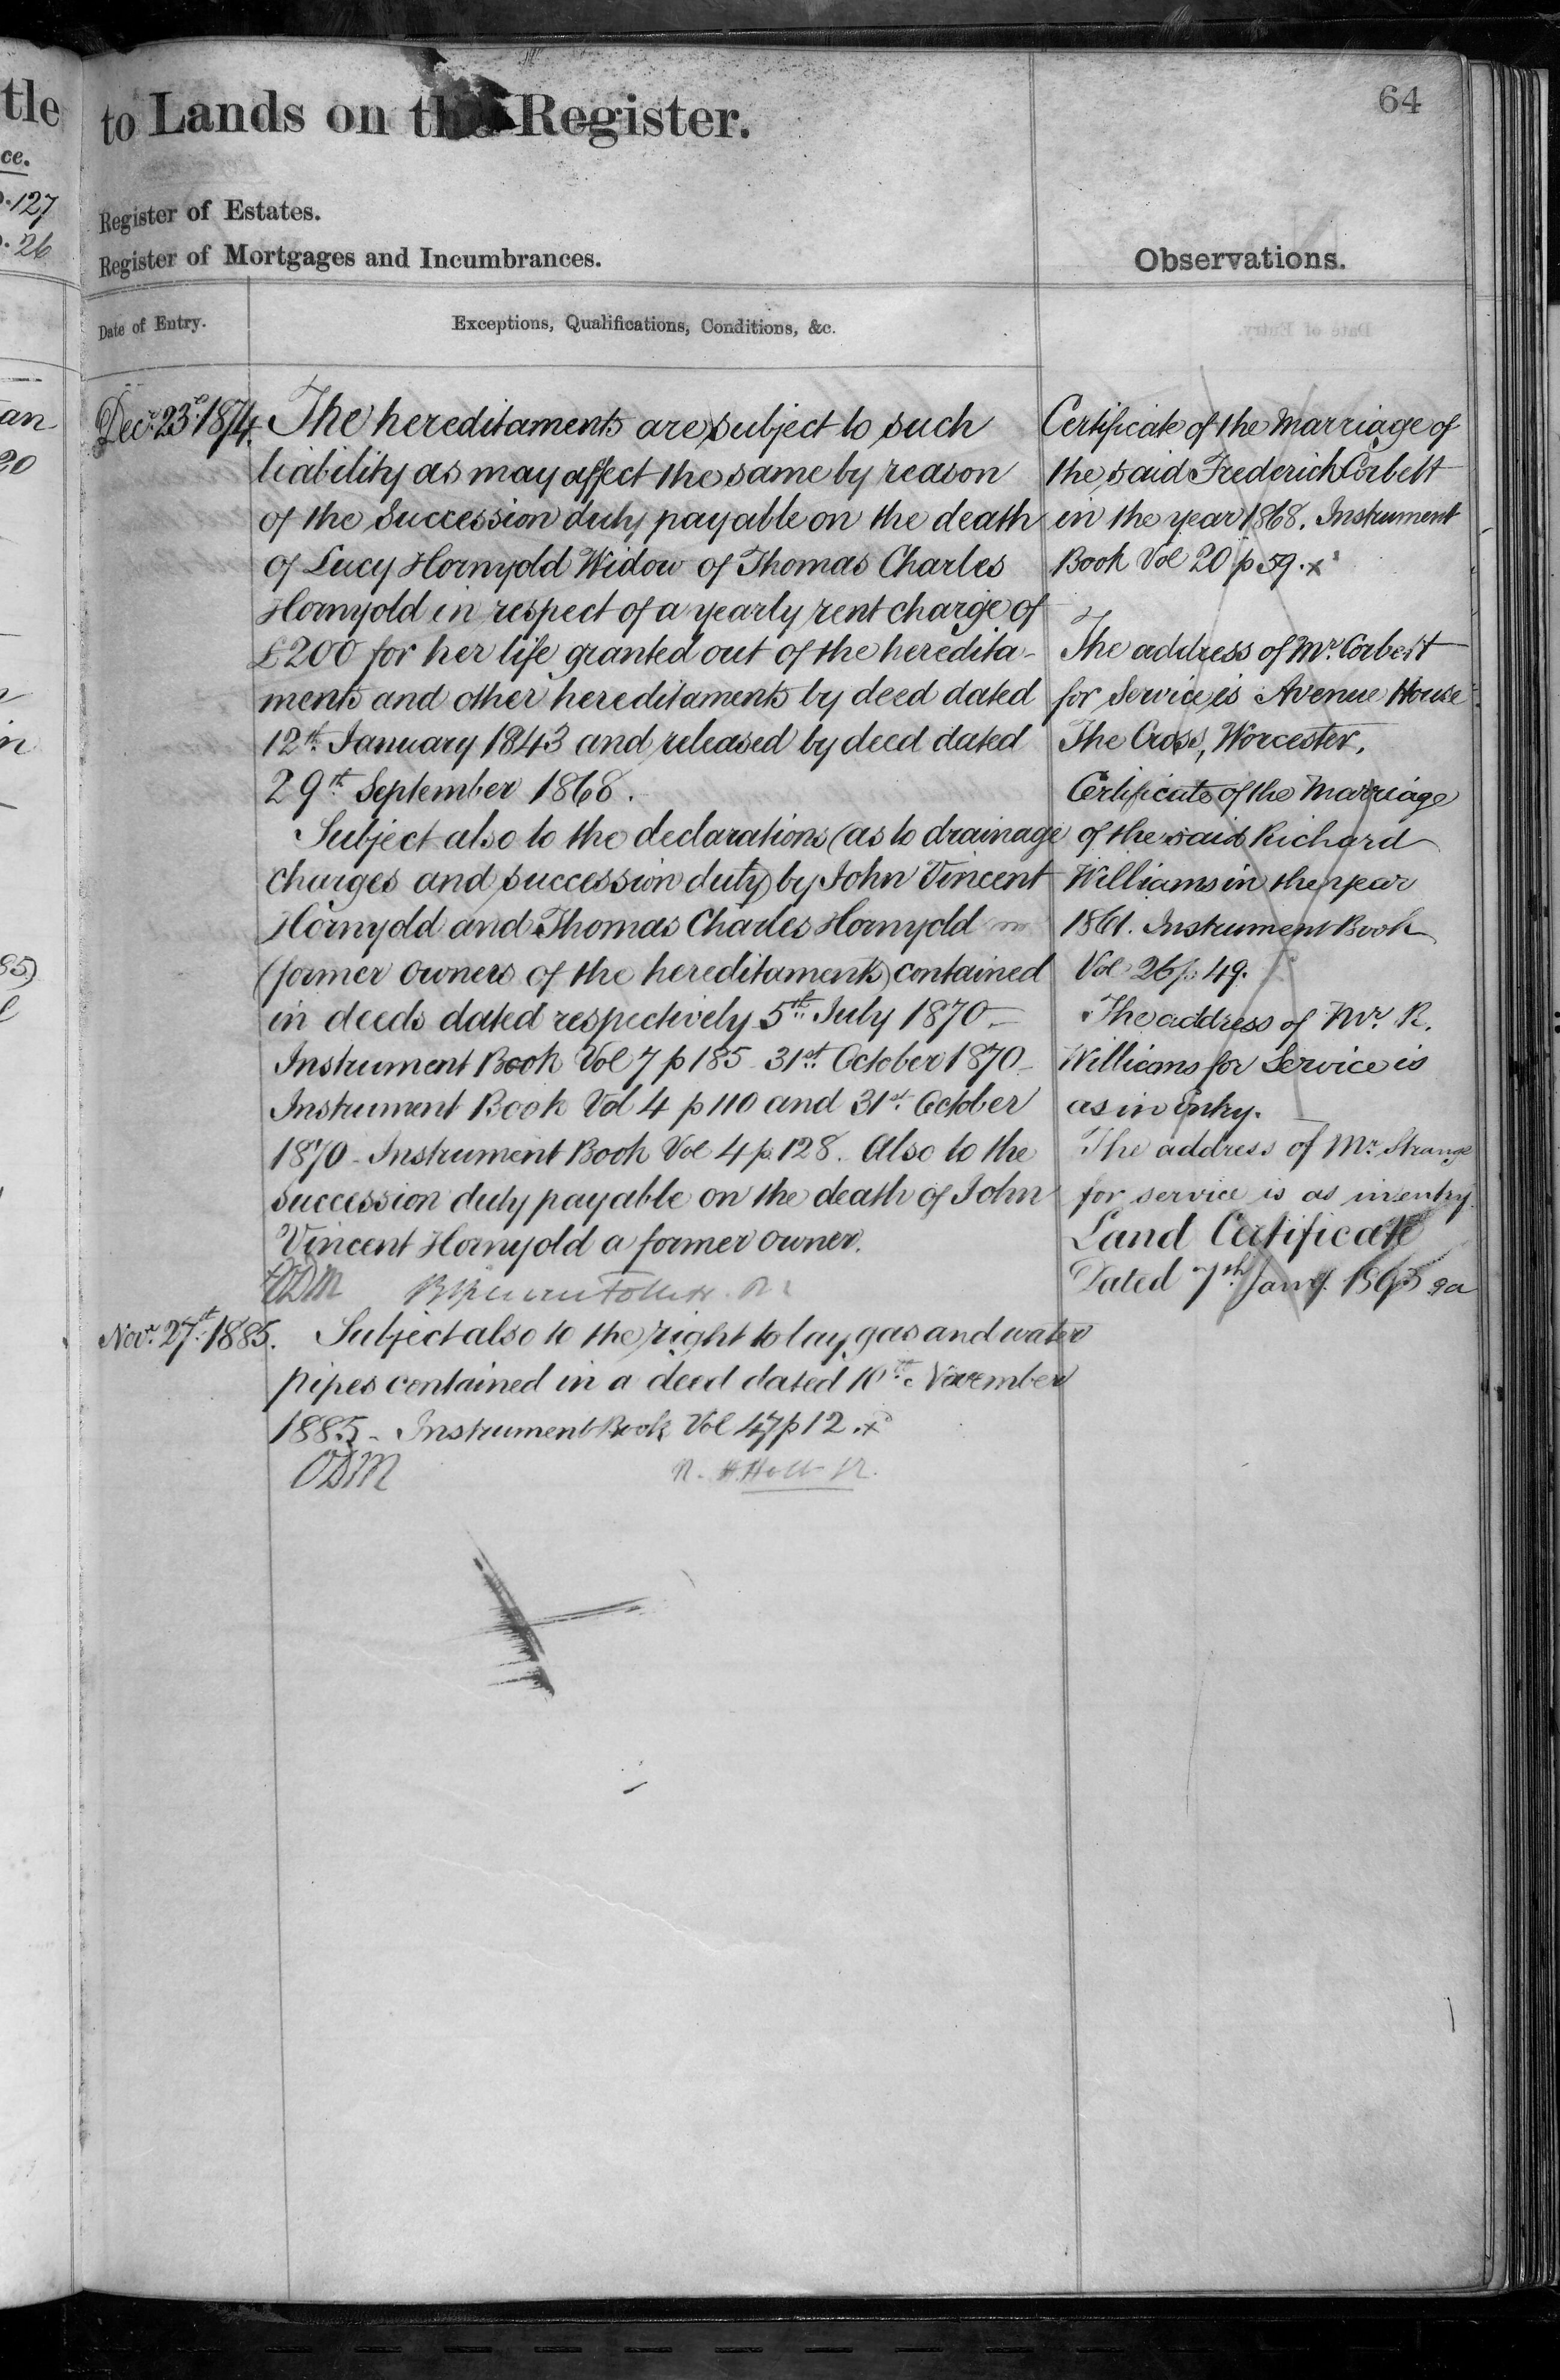 tle
ce.
127
26
an
20
85)
64
to Lands on the Register.
Register of Estates.
Register of Mortgages and Incumbrances.
Observations.
Date of Entry.
Exceptions, Qualifications, Conditions, &c.
Decr. 23rd. 1874.
The hereditaments are subject to such
liability as may affect the same by reason
of the Succession duty payable on the death
of Lucy Hornyold Widow of Thomas Charles
Hornyold in respect of a yearly rent charge of
£200 for her life granted out of the heredita-
ments and other hereditaments by deed dated
12th. January 1843 and released by deed dated
29th. September 1868.
Subject also to the declarations (as to drainage
charges and succession duty) by John Vincent
Hornyold and Thomas Charles Hornyold
(former owners of the hereditaments) contained
in deeds dated respectively 5th. July 1870 -
Instrument Book Vol 7 p 185 31st. October 1870 -
Instrument Book Vol 4 p 110 and 31st. October
1870 - Instrument Book Vol 4 p. 128. Also to the
succession duty payable on the death of John
Vincent Hornyold a former owner.
ODM
Novr. 27th. 1885.
Subject also to the right to lay gas and water
pipes contained in a deed dated 10th. November
1885 - Instrument Book Vol 47 p 12 . x
ODM
R. H Holt R.
Certificate of the Marriage of
the said Frederick Corbett
in the year 1868. Instrument
Book Vol 20 p 59. x
The address of Mr. Corbett
for Service is Avenue House
The Cross, Worcester.
Certificate of the Marriage
of the said Richard
Williams in the year
1861. Instrument Book
Vol 26 p. 49.
The address of Mr. R.
Williams for Service is
as in Entry.
The address of Mr. Strange
for service is as in entry.
Land Certificate
Dated 7th. Jany.